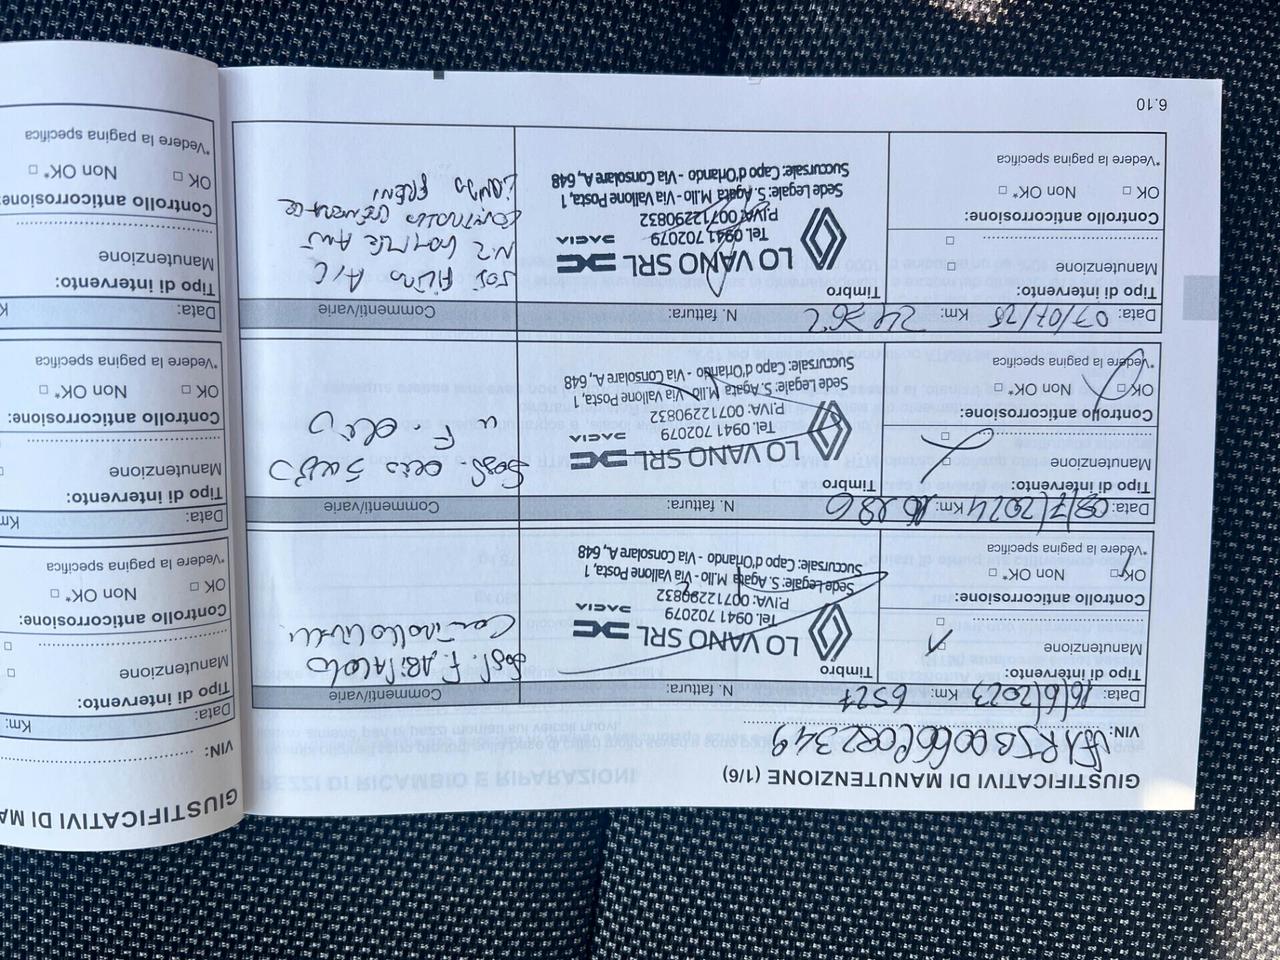 GIUSTIFICATIVI DI MANUTENZIONE (1/6)
VIN:
Data: 16/6/2023 Km: 6521 N. fattura: Commenti/varie
Tipo di intervento: Timbro
Manutenzione
Controllo anticorrosione:
OK Non OK*
*Vedere la pagina specifica
LO VANO SRL
DACIA
Tel. 0941 702079
P.IVA: 00712290832
Sede Legale: S. Agata M.llo - Via Vallone Posta, 1
Succursale: Capo d'Orlando - Via Consolare A, 648
Sost. F. Abitacolo
Controllo livelli
Data: 08/7/2024 Km: N. fattura: Commenti/varie
Tipo di intervento: Timbro
Manutenzione
Controllo anticorrosione:
OK Non OK*
*Vedere la pagina specifica
LO VANO SRL
DACIA
Tel. 0941 702079
P.IVA: 00712290832
Sede Legale: S. Agata M.llo - Via Vallone Posta, 1
Succursale: Capo d'Orlando - Via Consolare A, 648
Sost. olio
F. olio
Data: 07/07/25 Km: N. fattura: Commenti/varie
Tipo di intervento: Timbro
Manutenzione
Controllo anticorrosione:
OK Non OK*
*Vedere la pagina specifica
LO VANO SRL
DACIA
Tel. 0941 702079
P.IVA: 00712290832
Sede Legale: S. Agata M.llo - Via Vallone Posta, 1
Succursale: Capo d'Orlando - Via Consolare A, 648
FILTRO A/C
N.2 GOMME ANT
CONTROLLO
FRENI
6.10
GIUSTIFICATIVI DI MA
VIN:
Data: Km:
Tipo di intervento:
Manutenzione
Controllo anticorrosione:
OK Non OK*
*Vedere la pagina specifica
Data: Km
Tipo di intervento:
Manutenzione
Controllo anticorrosione:
OK Non OK*
*Vedere la pagina specifica
Data: K
Tipo di intervento:
Manutenzione
Controllo anticorrosione:
OK Non OK*
*Vedere la pagina specifica